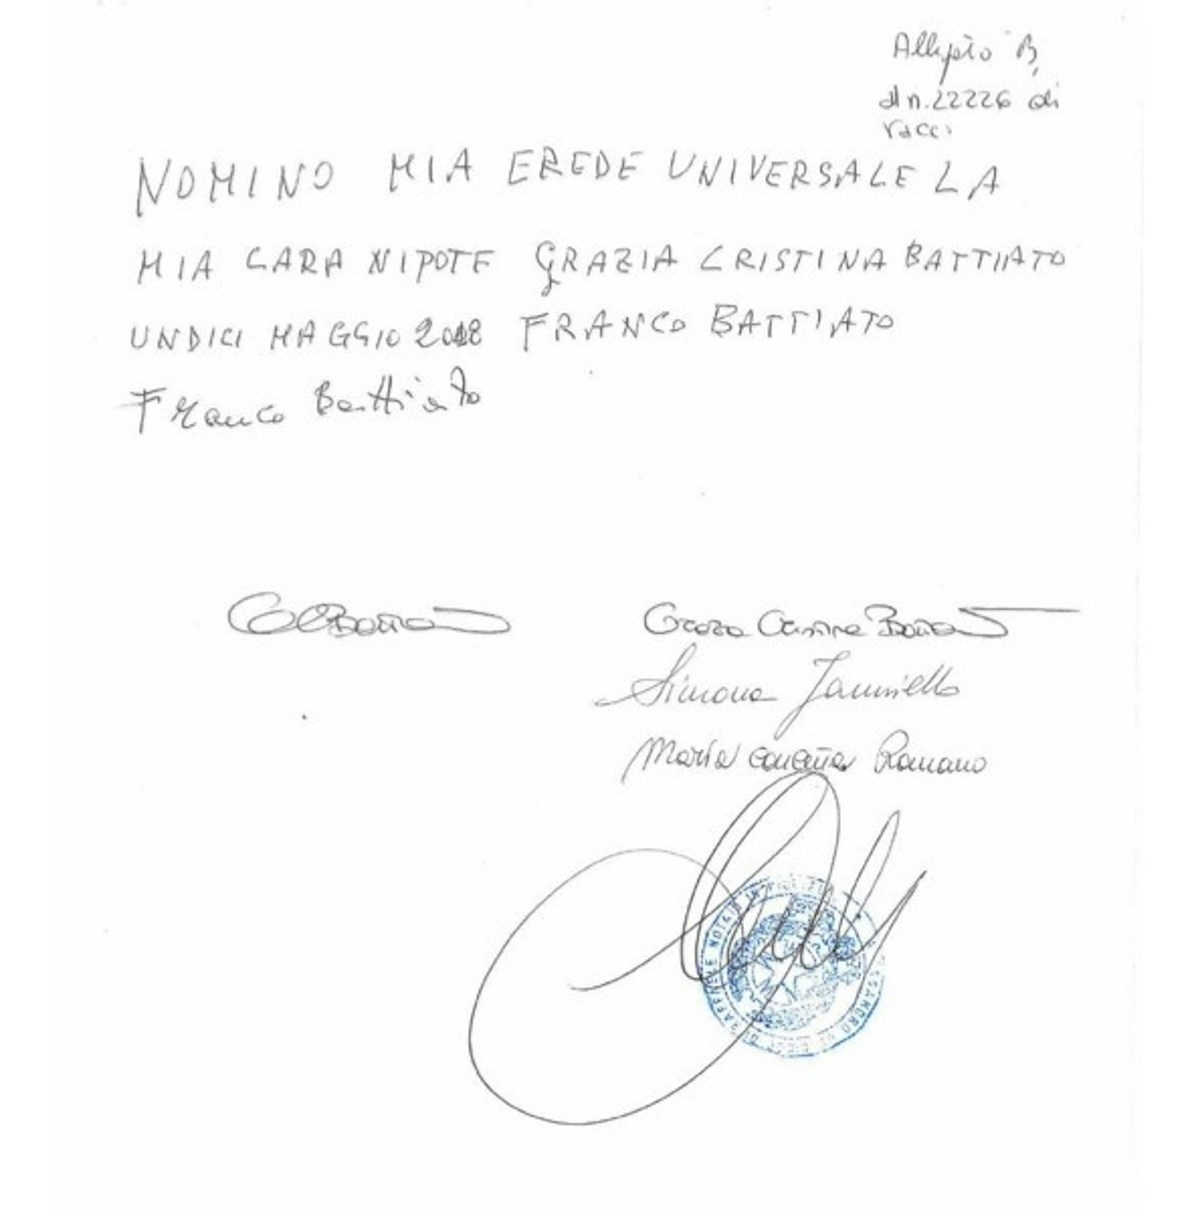 B,
n.22226 di
racc.
NOMINO MIA EREDE UNIVERSALE LA
MIA CARA NIPOTE GRAZIA CRISTINA BATTIATO
UNDICI MAGGIO 2018 FRANCO BATTIATO
Franco Battiato
Grazia Cristina Battiato
Simona Ianniello
Maria Romano
NOTAIO IN